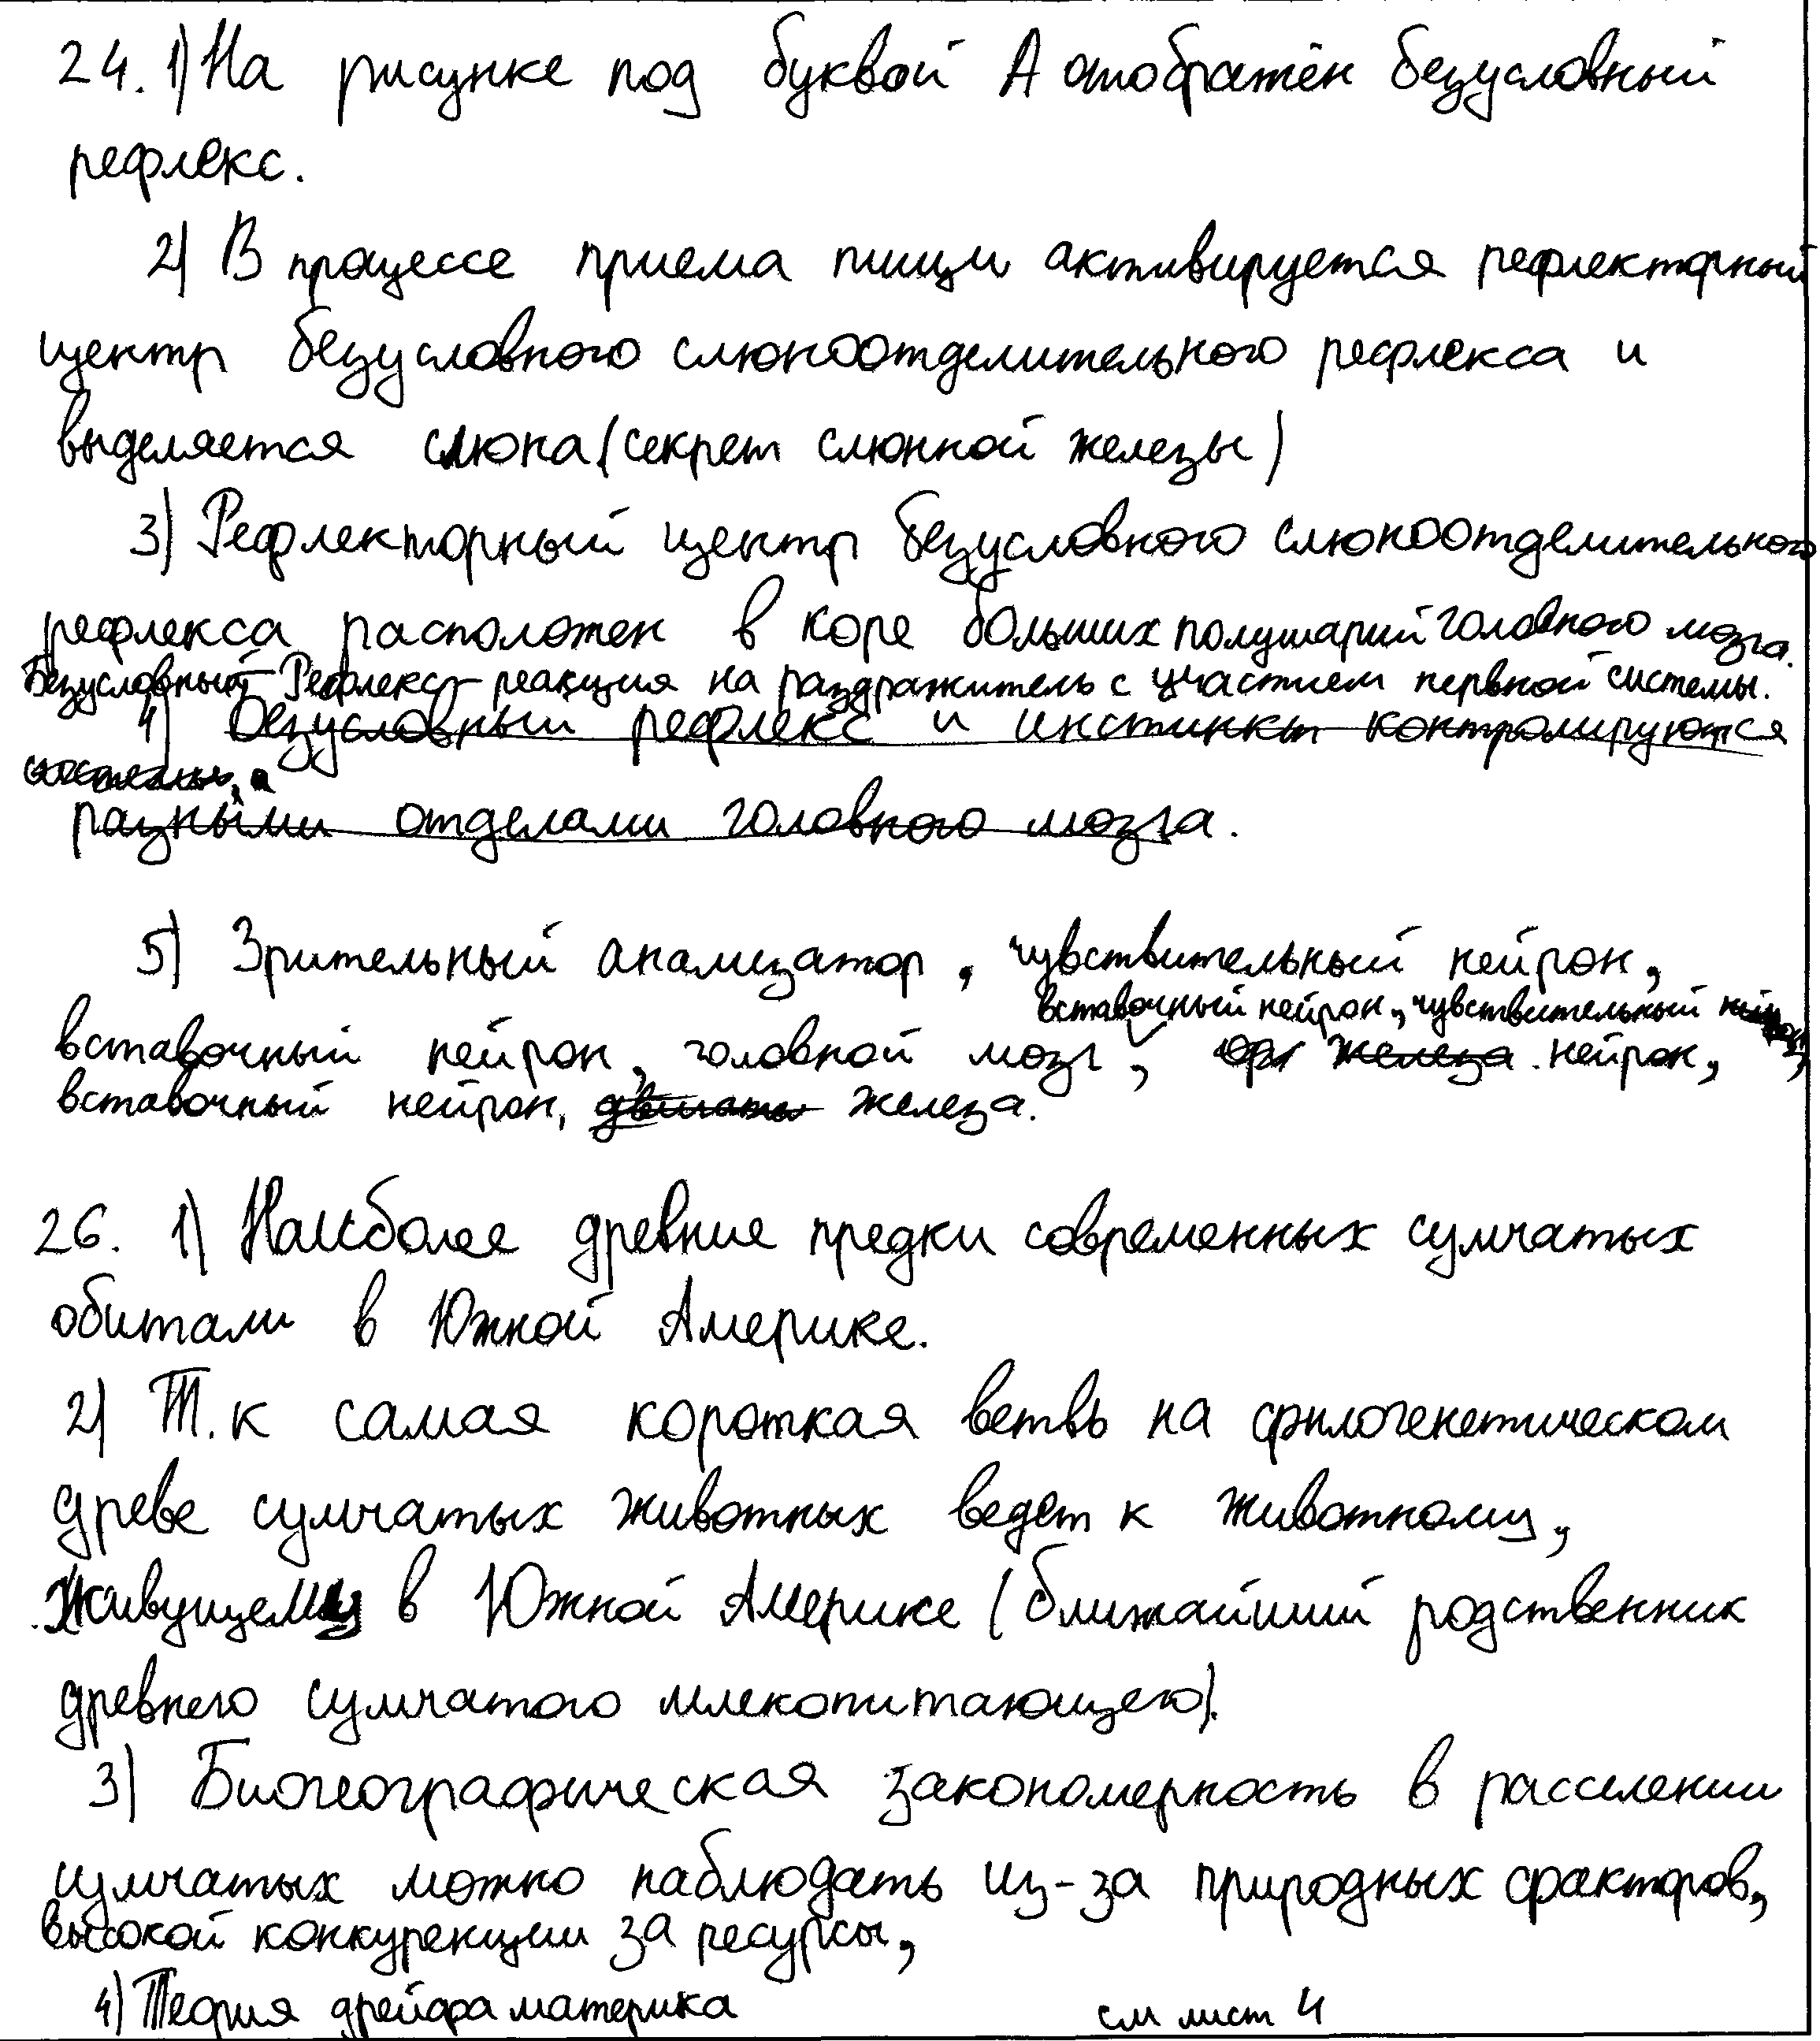 24. 1) На рисунке под буквой А отображён безусловный
рефлекс.
2) В процессе приема пищи активируется рефлекторный
центр безусловного слюноотделительного рефлекса и
выделяется слюна (секрет слюнной железы)
3) Рефлекторный центр безусловного слюноотделительного
рефлекса расположен в коре больших полушарий головного мозга.
Безусловный Рефлекс - реакция на раздражитель с участием нервной системы.
4) Безусловный рефлекс и инстинкт контролируются
разными отделами головного мозга.
5) Зрительный анализатор, чувствительный нейрон,
вставочный нейрон, чувствительный
вставочный нейрон, головной мозг, железа нейрон,
вставочный нейрон, железа.
26. 1) Наиболее древние предки современных сумчатых
обитали в Южной Америке.
2) Т.к самая короткая ветвь на филогенетическом
древе сумчатых животных ведет к животному,
живущему в Южной Америке (ближайший родственник
древнего сумчатого млекопитающего).
3) Биогеографическая закономерность в расселении
сумчатых можно наблюдать из-за природных факторов,
высокой конкуренции за ресурсы,
4) Теория дрейфа материка
см лист 4